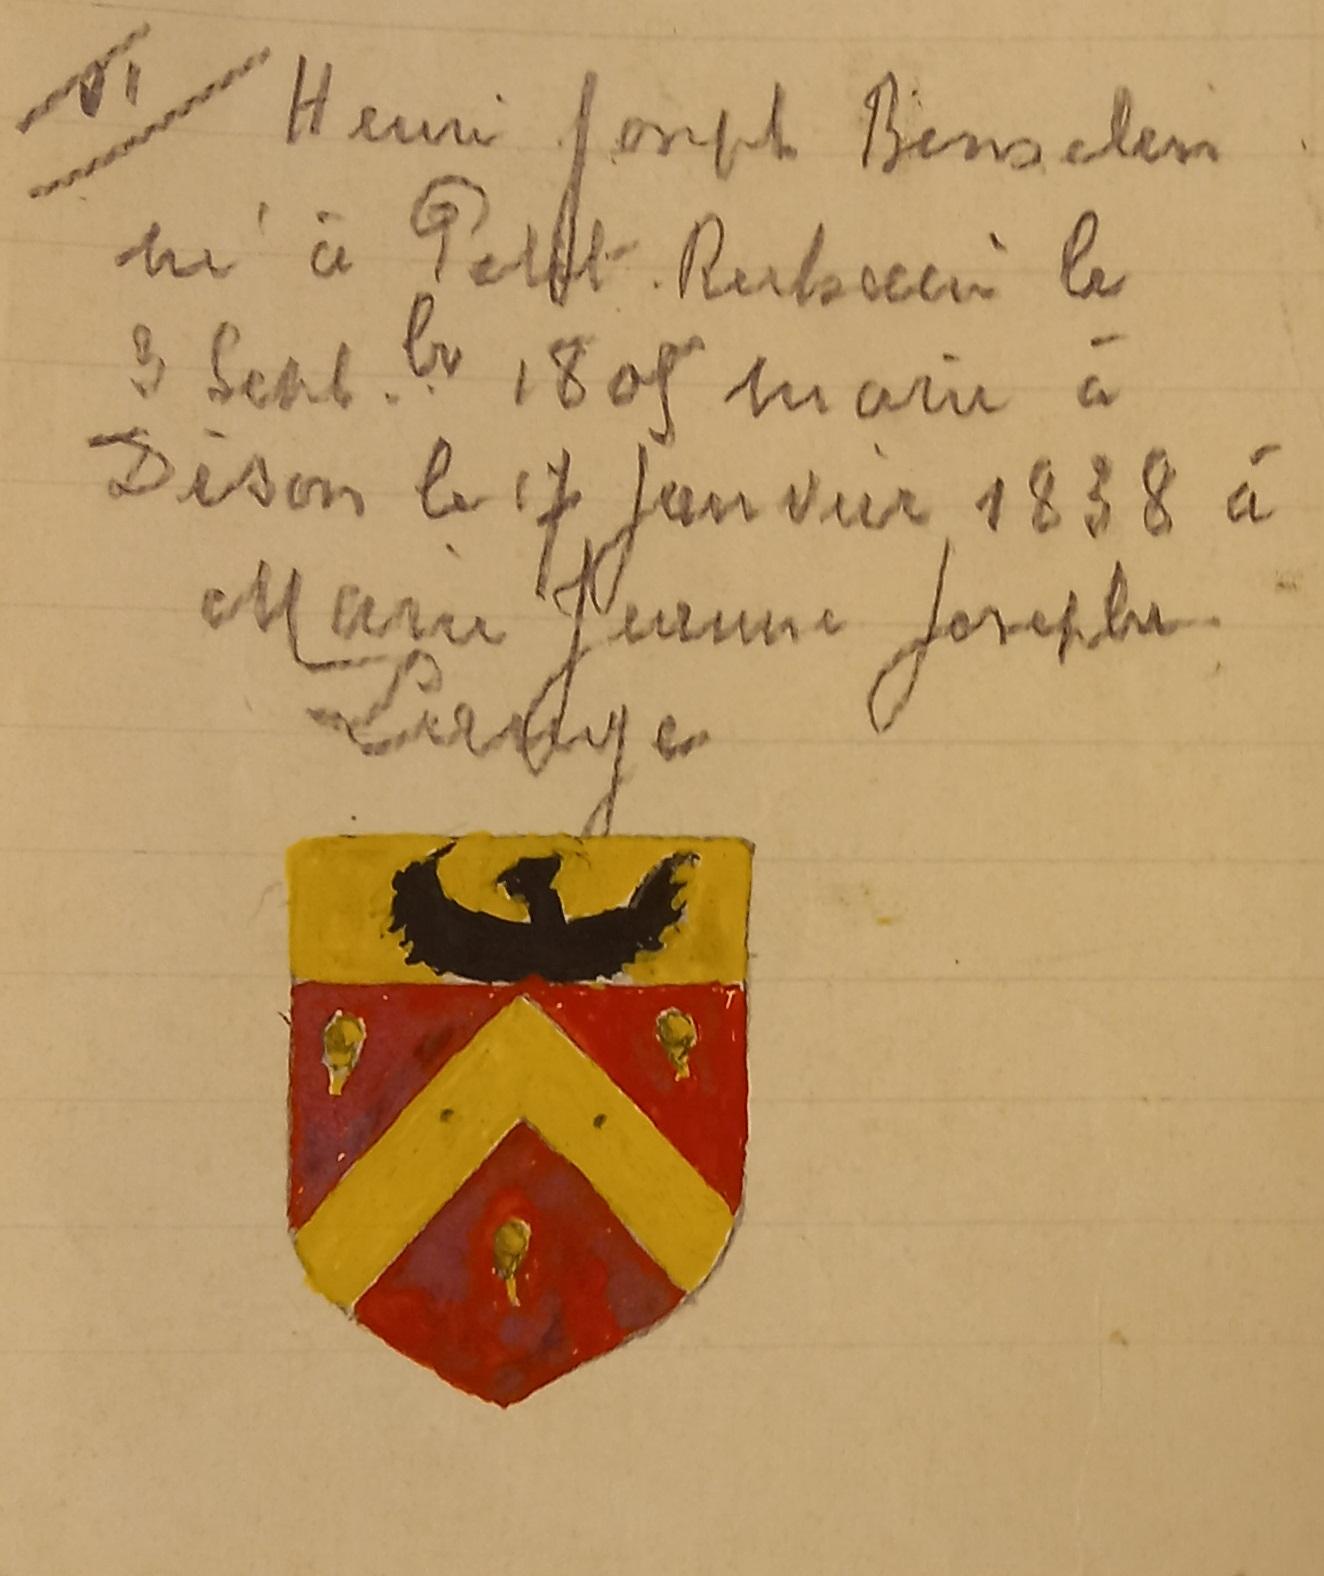 VI Henri Joseph Binsdein
né à Petit-Rechain le
3 Sept.br 1805 marié à
Dison le 17 Janvier 1838 à
Marie Jeanne Josephe